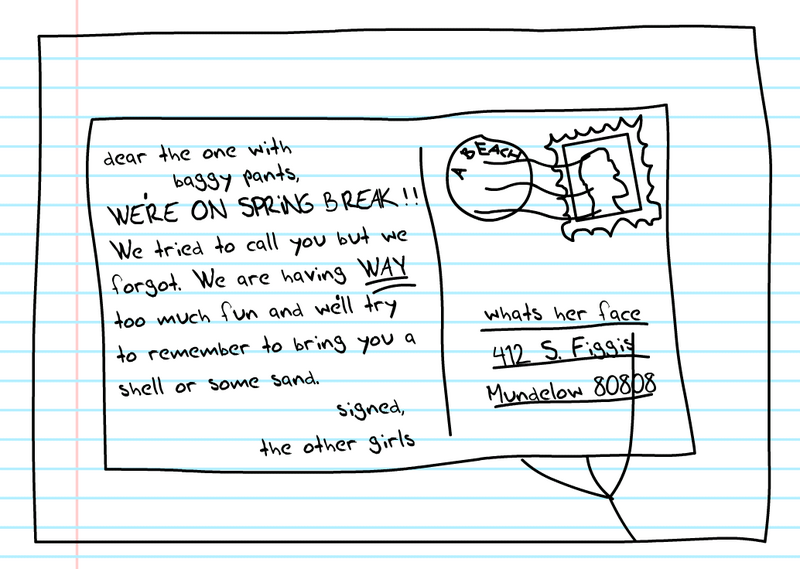 dear the one with
baggy pants,
WE'RE ON SPRING BREAK!!
We tried to call you but we
forgot. We are having WAY
too much fun and we'll try
to remember to bring you a
shell or some sand.
signed,
the other girls
A BEACH
whats her face
412 S. Figgis
Mundelow 80808